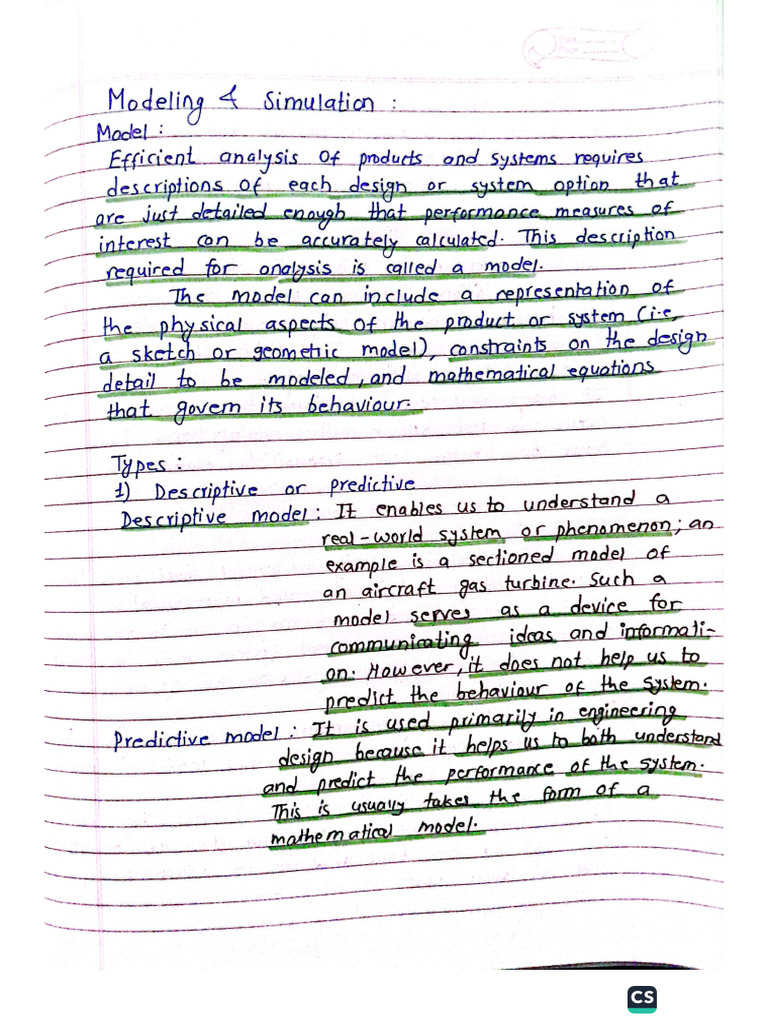 Modeling & Simulation :
Model :
Efficient analysis of products and systems requires
descriptions of each design or system option that
are just detailed enough that performance measures of
interest can be accurately calculated. This description
required for analysis is called a model.
The model can include a representation of
the physical aspects of the product or system (i.e,
a sketch or geometric model), constraints on the design
detail to be modeled, and mathematical equations
that govern its behaviour.
Types :
1) Descriptive or predictive
Descriptive model : It enables us to understand a
real-world system or phenomenon; an
example is a sectioned model of
an aircraft gas turbine. Such a
model serves as a device for
communicating ideas and informati-
on. However, it does not help us to
predict the behaviour of the system.
Predictive model : It is used primarily in engineering
design because it helps us to both understand
and predict the performance of the system.
This is usually takes the form of a
mathematical model.
CS